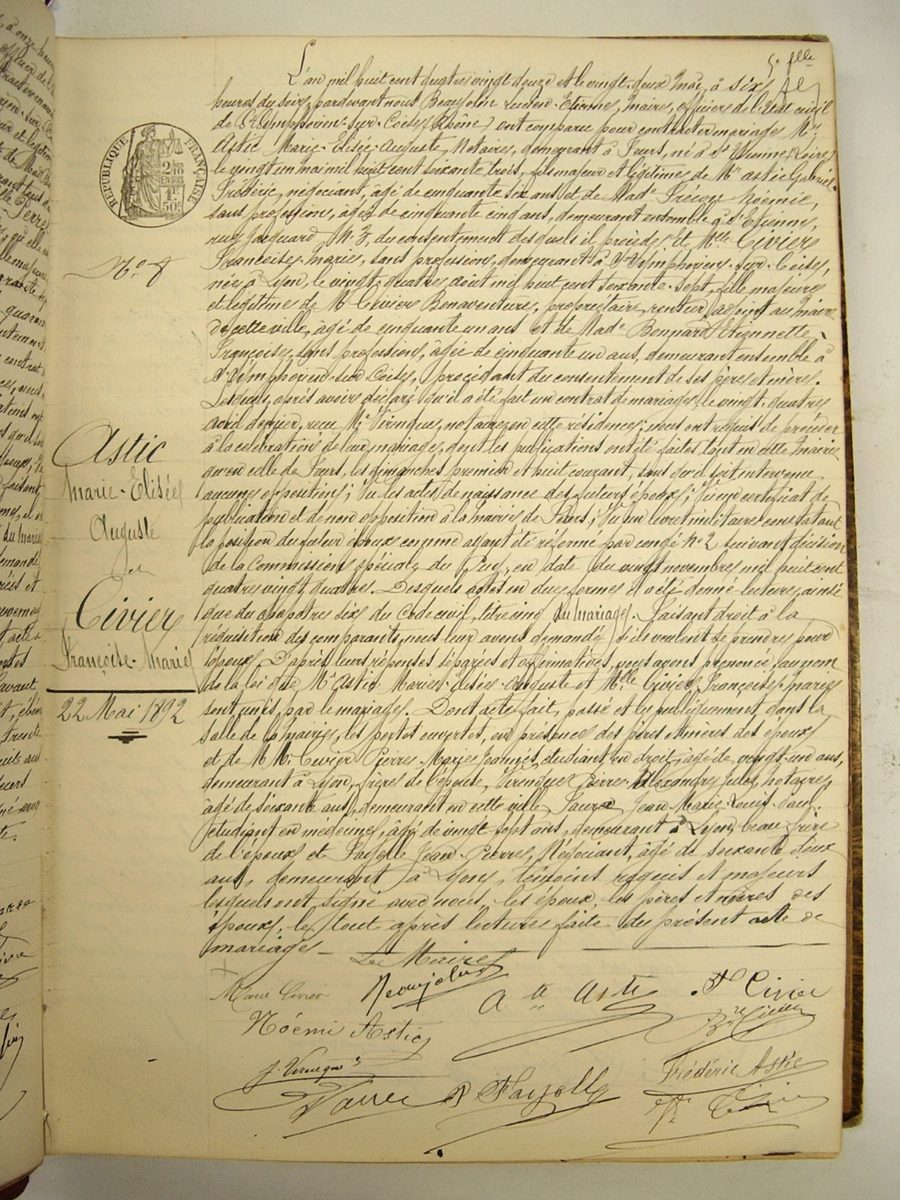 5e flle
L'an mil huit cent quatre vingt douze et le vingt-deux Mai, à six
heures du soir, pardevant nous Beaujolin Etienne, Maire, officier de l'Etat civil
de St Symphorien-sur-Coise (Rhône) ont comparu pour contracter mariage Mr
Astic Marie-Elisée-Auguste, Notaire, demeurant à Feurs, né à St Etienne (Loire)
le vingt un mai mil huit cent soixante trois, fils majeur et légitime de Mr Astic Gabriel-
Frédéric, négociant, âgé de cinquante six ans et de Made Noémie,
sans profession, âgée de cinquante cinq ans, demeurant ensemble à St Etienne,
rue Jacquard No 3, du consentement desquels il procède; Et Melle Civier
Françoise-Marie, sans profession, demeurant à St Symphorien-sur-Coise,
née à Lyon, le vingt-quatre août mil huit cent soixante-sept, fille majeure
et légitime de Mr Civier Bonaventure, propriétaire rentier, adjoint au maire
de cette ville, âgé de cinquante un ans et de Made Bonnard Etiennette
Françoise, sans profession, âgée de cinquante un ans, demeurant ensemble à
St Symphorien-sur-Coise, procédant du consentement de ses père et mère.
Lesquels, après avoir déclaré qu'il a été fait un contrat de mariage, le vingt-quatre
avril dernier, reçu Me Virenque, notaire en cette résidence, nous ont requis de procéder
à la célébration de leur mariage, dont les publications ont été faites tant en cette Mairie
qu'en celle de Feurs, les dimanches premier et huit courant, sans qu'il soit intervenu
aucune opposition; Vu les actes de naissance des futurs époux; Vu un certificat de
publication et de non opposition à la mairie de Feurs; Vu un livret militaire constatant
la position du futur époux comme ayant été réformé par congé No 2 suivant décision
de la Commission spéciale du Puy, en date du vingt novembre mil huit cent
quatre vingt quatre. Desquels actes en due forme il a été donné lecture, ainsi
que du chapitre six du Code civil, titre cinq (du Mariage). Faisant droit à la
réquisition des comparants, nous leur avons demandé s'ils veulent se prendre pour
époux. D'après leurs réponses séparées et affirmatives, nous avons prononcé, au nom
de la loi que Mr Astic Marie-Elisée-Auguste et Melle Civier Françoise-Marie
sont unis par le mariage. Dont acte fait, passé et lu publiquement, dans la
salle de la mairie, les portes ouvertes, en présence des pères et mères des époux
et de MM. Civier Pierre Marie Joannès, étudiant en droit, âgé de vingt-un ans,
demeurant à Lyon, frère de l'épouse, Virenque Pierre Alexandre Jules, notaire,
âgé de soixante ans, demeurant en cette ville, Jean Marie Louis
étudiant en médecine, âgé de vingt-sept ans, demeurant à Lyon, beau frère
de l'époux et Fayolle Jean-Pierre, Négociant, âgé de soixante deux
ans, demeurant à Lyon, témoins requis et majeurs
lesquels ont signé avec nous, les époux, les pères et mères des
époux, le tout après lecture faite du présent acte de
mariage. Le Maire
RÉPUBLIQUE FRANÇAISE
No 8
Astic
Marie-Elisée
Auguste
et
Civier
Françoise-Marie
22 Mai 1892
Marie Civier Beaujolin A tte Astic Civier
Noémi Astic
J. Virenque Frédéric Astic
P Fayolle